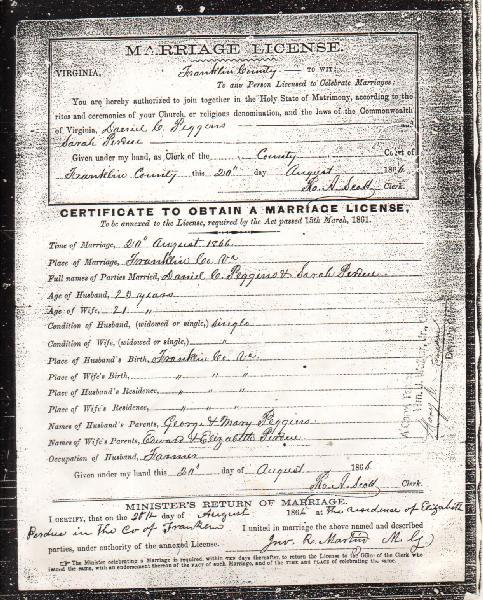 MARRIAGE LICENSE.
VIRGINIA, Franklin County — TO WIT:
To any Person Licensed to Celebrate Marriages:
You are hereby authorized to join together in the Holy State of Matrimony, according to the
rites and ceremonies of your Church, or religious denomination, and the laws of the Commonwealth
of Virginia, Daniel C. Peggins
Sarah Perdue
Given under my hand, as Clerk of the County Court of
Franklin County this 20" day August 1866
Ro. A. Scott, Clerk.
CERTIFICATE TO OBTAIN A MARRIAGE LICENSE,
To be annexed to the License, required by the Act passed 15th March, 1861.
Time of Marriage, 20" August 1866
Place of Marriage, Franklin Co Va
Full names of Parties Married, Daniel C. Peggins & Sarah Perdue
Age of Husband, 23 years
Age of Wife, 21 "
Condition of Husband, (widowed or single,) single
Condition of Wife, (widowed or single,) "
Place of Husband's Birth, Franklin Co. Va.
Place of Wife's Birth, " " "
Place of Husband's Residence, " " "
Place of Wife's Residence, " " "
Names of Husband's Parents, George & Mary Peggins
Names of Wife's Parents, Edward & Elizabeth Perdue
Occupation of Husband, Farmer
Given under my hand this 20" day of August 1866
Ro. A. Scott Clerk.
MINISTER'S RETURN OF MARRIAGE.
I CERTIFY, that on the 28th day of August 1866 at the residence of Elizabeth
Perdue in the Co of Franklin I united in marriage the above named and described
parties, under authority of the annexed License. Jno. R. Martin M. G.
☞ The Minister celebrating a Marriage is required, within TEN days thereafter, to return the License to the Office of the Clerk who
issued the same, with an endorsement thereon of the FACT of such Marriage, and of the TIME and PLACE of celebrating the same.
A Copy